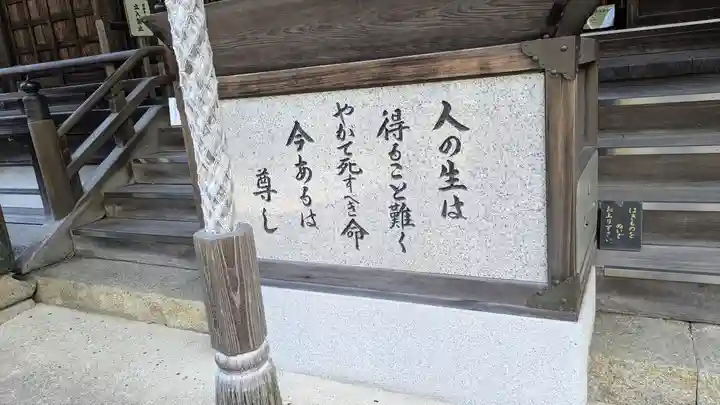 人の生は
得ること難く
やがて死すべき命
今あるは
尊し
はきものを
ぬいで
お上り下さい
立入禁止